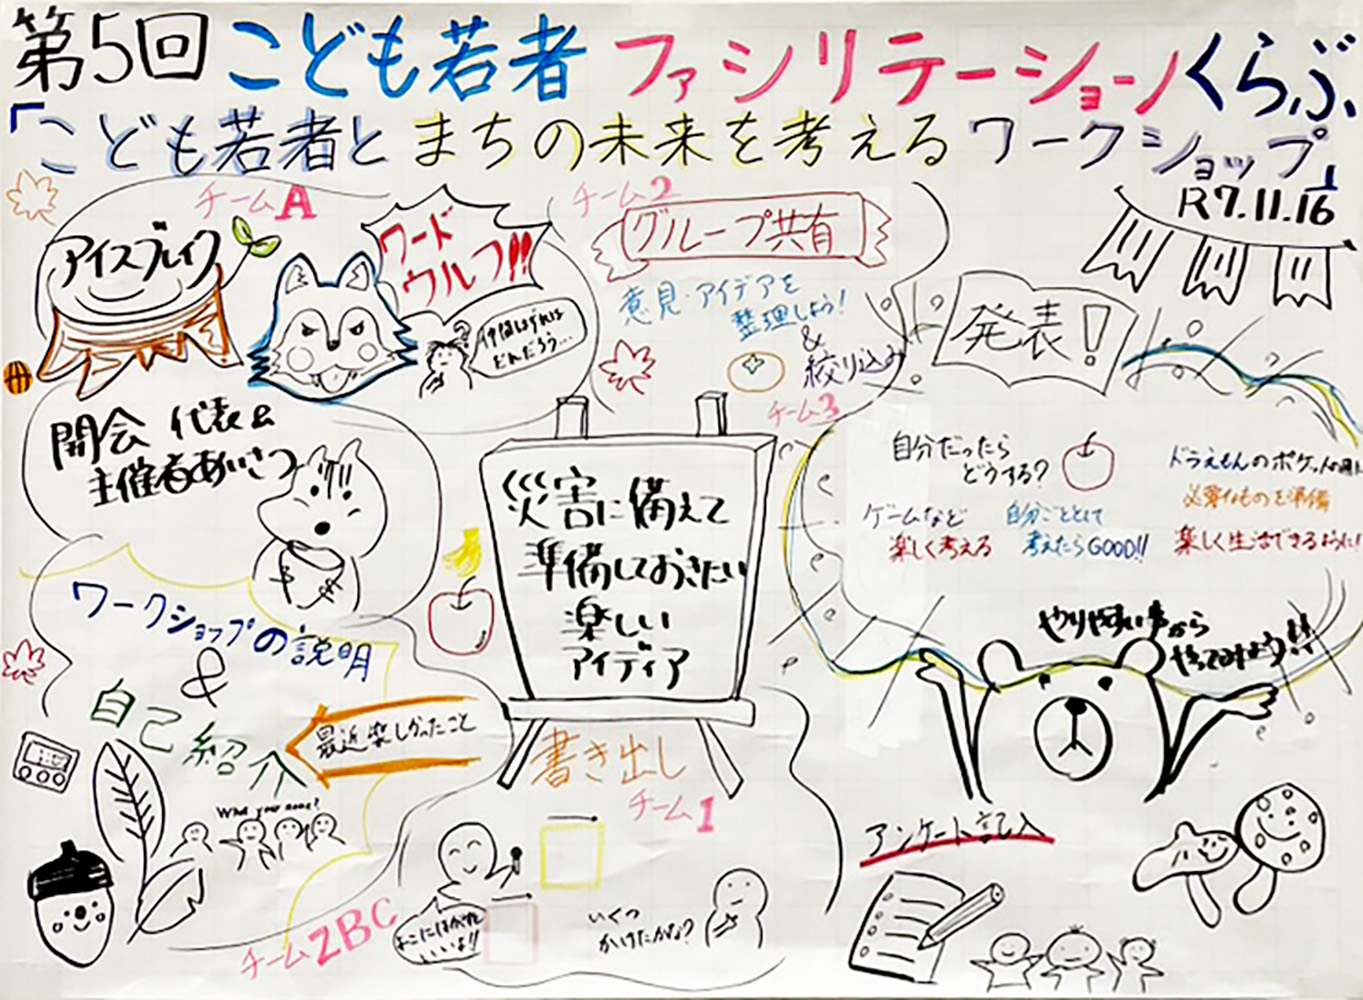 第5回 こども若者 ファシリテーションくらぶ
「こども若者とまちの未来を考えるワークショップ」
R7.11.16
チームA
アイスブレイク
ワード
ウルフ!!
どんだろう…
開会 代表&
主催者あいさつ
ワークショップの説明
&
自己紹介
最近楽しかったこと
What your name?
チームZBC
チーム2
グループ共有
意見・アイデアを
整理しよう!
&
絞り込み
チーム3
災害に備えて
準備しておきたい
楽しい
アイディア
書き出し
チーム1
いくつ
かけたかな?
発表!
自分だったら
どうする?
ゲームなど
楽しく考える
自分ごととして
考えたらGOOD!!
ドラえもんのポケットの用に
必要なものを準備
楽しく生活できるように!
やりやすい事から
やってみよう!!
アンケート記入